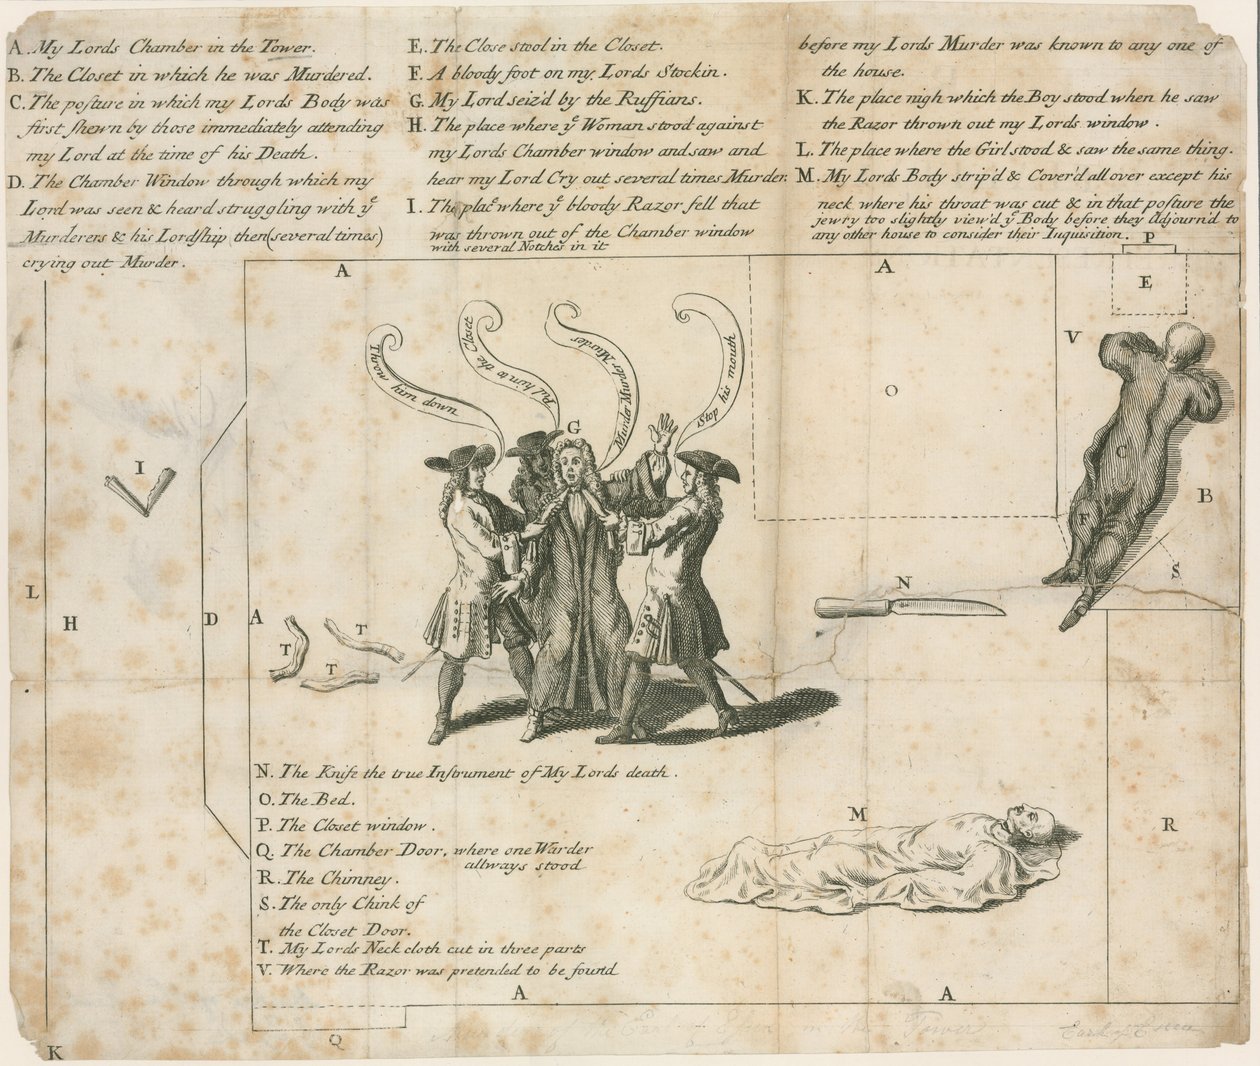 A. My Lords Chamber in the Tower.
B. The Closet in which he was Murdered.
C. The posture in which my Lords Body was
first shewn by those immediately attending
my Lord at the time of his Death.
D. The Chamber Window through which my
Lord was seen & heard struggling with yᵉ
Murderers & his Lordship then (several times)
crying out Murder.
E. The Close stool in the Closet.
F. A bloody foot on my Lords Stockin.
G. My Lord seiz'd by the Ruffians.
H. The place where yᵉ Woman stood against
my Lords Chamber window and saw and
hear my Lord Cry out several times Murder.
I. The place where yᵉ bloody Razor fell that
was thrown out of the Chamber window
with several Notches in it
before my Lords Murder was known to any one of
the house.
K. The place nigh which the Boy stood when he saw
the Razor thrown out my Lords window.
L. The place where the Girl stood & saw the same thing.
M. My Lords Body strip'd & Cover'd all over except his
neck where his throat was cut & in that posture the
jewry too slightly view'd yᵉ Body before they Adjourn'd to
any other house to consider their Inquisition.
P
A
A
E
V
Throw him down
Pul him to the Closet
Murder Murder Murder
Stop his mouth
O
G
C
I
B
F
S
N
L
H
D
A
T
T
T
N. The Knife the true Instrument of My Lords death.
O. The Bed.
P. The Closet window.
Q. The Chamber Door, where one Warder
allways stood
R. The Chimney.
S. The only Chink of
the Closet Door.
T. My Lords Neck cloth cut in three parts
V. Where the Razor was pretended to be found
M
R
A
A
Q
in the Tower
Earl of Essex
K